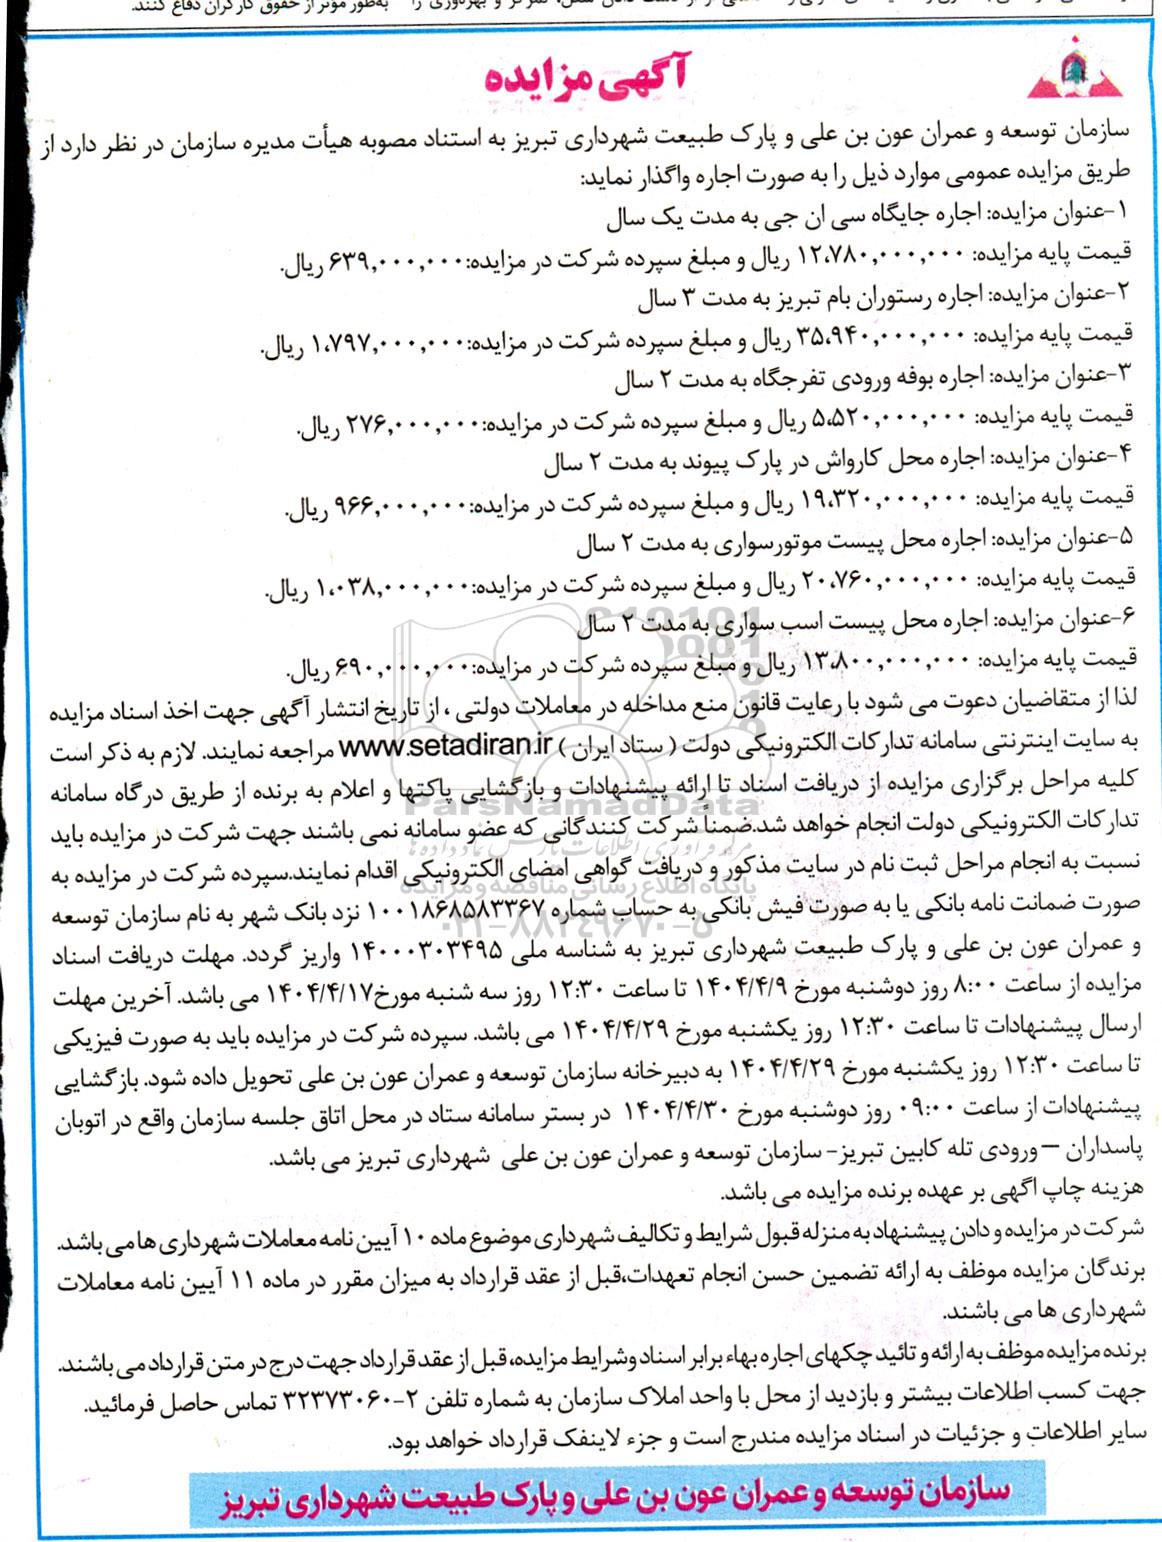 به‌طور مؤثر از حقوق کارگران دفاع کنند.
آگهی مزایده
سازمان توسعه و عمران عون بن علی و پارک طبیعت شهرداری تبریز به استناد مصوبه هیأت مدیره سازمان در نظر دارد از
طریق مزایده عمومی موارد ذیل را به صورت اجاره واگذار نماید:
۱-عنوان مزایده: اجاره جایگاه سی ان جی به مدت یک سال
قیمت پایه مزایده: ۱۲،۷۸۰,۰۰۰,۰۰۰ ریال و مبلغ سپرده شرکت در مزایده:۶۳۹,۰۰۰,۰۰۰ ریال.
۲-عنوان مزایده: اجاره رستوران بام تبریز به مدت ۳ سال
قیمت پایه مزایده: ۳۵،۹۴۰,۰۰۰,۰۰۰ ریال و مبلغ سپرده شرکت در مزایده:۱،۷۹۷,۰۰۰,۰۰۰ ریال.
۳-عنوان مزایده: اجاره بوفه ورودی تفرجگاه به مدت ۲ سال
قیمت پایه مزایده: ۵،۵۲۰,۰۰۰,۰۰۰ ریال و مبلغ سپرده شرکت در مزایده:۲۷۶,۰۰۰,۰۰۰ ریال.
۴-عنوان مزایده: اجاره محل کارواش در پارک پیوند به مدت ۲ سال
قیمت پایه مزایده: ۱۹،۳۲۰,۰۰۰,۰۰۰ ریال و مبلغ سپرده شرکت در مزایده:۹۶۶,۰۰۰,۰۰۰ ریال.
۵-عنوان مزایده: اجاره محل پیست موتورسواری به مدت ۲ سال
قیمت پایه مزایده: ۲۰،۷۶۰,۰۰۰,۰۰۰ ریال و مبلغ سپرده شرکت در مزایده:۱،۰۳۸,۰۰۰,۰۰۰ ریال.
۶-عنوان مزایده: اجاره محل پیست اسب سواری به مدت ۲ سال
قیمت پایه مزایده: ۱۳،۸۰۰,۰۰۰,۰۰۰ ریال و مبلغ سپرده شرکت در مزایده:۶۹۰,۰۰۰,۰۰۰ ریال.
لذا از متقاضیان دعوت می شود با رعایت قانون منع مداخله در معاملات دولتی ، از تاریخ انتشار آگهی جهت اخذ اسناد مزایده
به سایت اینترنتی سامانه تدارکات الکترونیکی دولت ( ستاد ایران ) www.setadiran.ir مراجعه نمایند. لازم به ذکر است
کلیه مراحل برگزاری مزایده از دریافت اسناد تا ارائه پیشنهادات و بازگشایی پاکتها و اعلام به برنده از طریق درگاه سامانه
ParsNamadData
تدارکات الکترونیکی دولت انجام خواهد شد.ضمناً شرکت کنندگانی که عضو سامانه نمی باشند جهت شرکت در مزایده باید
مرکز فرآوری اطلاعات پارس نماد داده ها
نسبت به انجام مراحل ثبت نام در سایت مذکور و دریافت گواهی امضای الکترونیکی اقدام نمایند.سپرده شرکت در مزایده به
پایگاه اطلاع رسانی مناقصه و مزایده
صورت ضمانت نامه بانکی یا به صورت فیش بانکی به حساب شماره ۱۰۰۱۸۶۸۵۸۳۳۶۷ نزد بانک شهر به نام سازمان توسعه
۰۲۱-۸۸۳۴۹۶۷۰-۵
و عمران عون بن علی و پارک طبیعت شهرداری تبریز به شناسه ملی ۱۴۰۰۰۳۰۳۴۹۵ واریز گردد. مهلت دریافت اسناد
مزایده از ساعت ۸:۰۰ روز دوشنبه مورخ ۱۴۰۴/۴/۹ تا ساعت ۱۲:۳۰ روز سه شنبه مورخ۱۴۰۴/۴/۱۷ می باشد. آخرین مهلت
ارسال پیشنهادات تا ساعت ۱۲:۳۰ روز یکشنبه مورخ ۱۴۰۴/۴/۲۹ می باشد. سپرده شرکت در مزایده باید به صورت فیزیکی
تا ساعت ۱۲:۳۰ روز یکشنبه مورخ ۱۴۰۴/۴/۲۹ به دبیرخانه سازمان توسعه و عمران عون بن علی تحویل داده شود. بازگشایی
پیشنهادات از ساعت ۰۹:۰۰ روز دوشنبه مورخ ۱۴۰۴/۴/۳۰ در بستر سامانه ستاد در محل اتاق جلسه سازمان واقع در اتوبان
پاسداران – ورودی تله کابین تبریز- سازمان توسعه و عمران عون بن علی شهرداری تبریز می باشد.
هزینه چاپ آگهی بر عهده برنده مزایده می باشد.
شرکت در مزایده و دادن پیشنهاد به منزله قبول شرایط و تکالیف شهرداری موضوع ماده ۱۰ آیین نامه معاملات شهرداری ها می باشد.
برندگان مزایده موظف به ارائه تضمین حسن انجام تعهدات،قبل از عقد قرارداد به میزان مقرر در ماده ۱۱ آیین نامه معاملات
شهرداری ها می باشند.
برنده مزایده موظف به ارائه و تائید چکهای اجاره بهاء برابر اسناد وشرایط مزایده، قبل از عقد قرارداد جهت درج در متن قرارداد می باشند.
جهت کسب اطلاعات بیشتر و بازدید از محل با واحد املاک سازمان به شماره تلفن ۲-۳۲۳۷۳۰۶۰ تماس حاصل فرمائید.
سایر اطلاعات و جزئیات در اسناد مزایده مندرج است و جزء لاینفک قرارداد خواهد بود.
سازمان توسعه و عمران عون بن علی و پارک طبیعت شهرداری تبریز